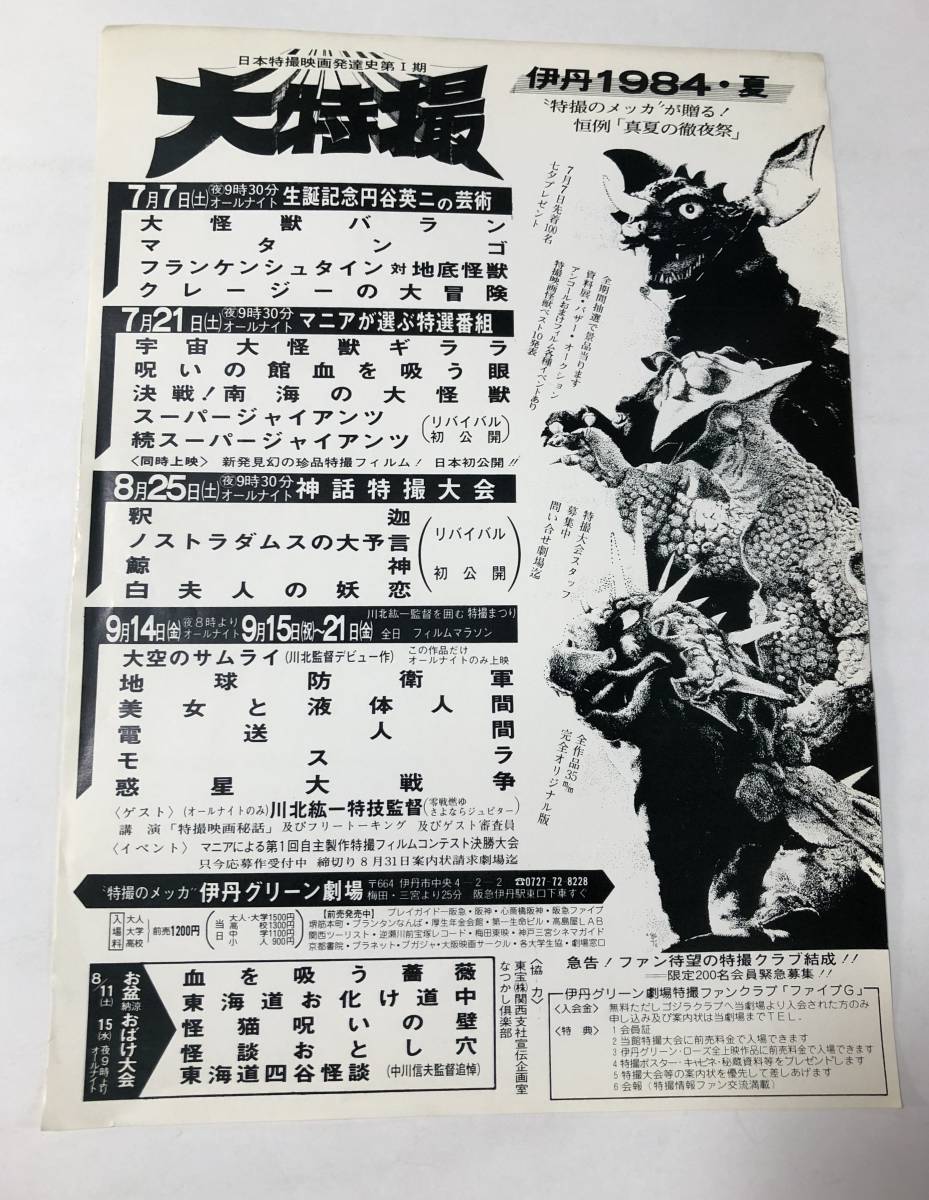 日本特撮映画発達史第Ⅰ期
大特撮
伊丹1984・夏
〝特撮のメッカ〟が贈る!
恒例「真夏の徹夜祭」
7月7日先着100名
七夕プレゼント
全期間抽選で景品当ります
資料展・バザー・オークション
アンコールおまけフィルム各種イベントあり
特撮映画怪獣ベスト10発表
特撮大会スタッフ
募集中
問い合せ劇場迄
全作品35㎜
完全オリジナル版
7月7日(土)夜9時30分オールナイト 生誕記念円谷英二の芸術
大怪獣バラン
マタンゴ
フランケンシュタイン対地底怪獣
クレージーの大冒険
7月21日(土)夜9時30分オールナイト マニアが選ぶ特選番組
宇宙大怪獣ギララ
呪いの館血を吸う眼
決戦!南海の大怪獣
スーパージャイアンツ
続スーパージャイアンツ
(リバイバル初公開)
〈同時上映〉 新発見幻の珍品特撮フィルム! 日本初公開!!
8月25日(土)夜9時30分オールナイト 神話特撮大会
釈迦
ノストラダムスの大予言
鯨神
白夫人の妖恋
(リバイバル初公開)
川北紘一監督を囲む 特撮まつり
9月14日(金)夜8時よりオールナイト 9月15日(祝)〜21日(金)全日 フィルムマラソン
大空のサムライ(川北監督デビュー作) この作品だけオールナイトのみ上映
地球防衛軍
美女と液体人間
電送人間
モスラ
惑星大戦争
〈ゲスト〉(オールナイトのみ)川北紘一特技監督(零戦燃ゆ さよならジュピター)
講演「特撮映画秘話」及びフリートーキング 及びゲスト審査員
〈イベント〉 マニアによる第1回自主製作特撮フィルムコンテスト決勝大会
只今応募作受付中 締切り8月31日案内状請求劇場迄
〝特撮のメッカ〟伊丹グリーン劇場 〒664 伊丹市中央4-2-2 ☎0727-72-8228
梅田・三宮より25分 阪急伊丹駅東口下車すぐ
入場料 大人 大学 高校 前売1200円
当日 大人・大学1500円
高校1300円
中学1100円
小人900円
【前売発売中】 プレイガイドー阪急・阪神・心斎橋阪神・阪急ファイブ
堺筋本町・プランタンなんば・厚生年金会館・第一生命ビル・高島屋LAB
関西ツーリスト・逆瀬川前宝塚レコード・梅田東映・神戸三宮シネマガイド
京都書院・プラネット・プガジャ・大阪映画サークル・各大学生協・劇場窓口
8/11(土) 15(水)夜9時よりオールナイト
お盆納涼おばけ大会
血を吸う薔薇
東海道お化け道中
怪猫呪いの壁
怪談おとし穴
東海道四谷怪談(中川信夫監督追悼)
〈協力〉
東宝(株)関西支社宣伝企画室
なつかし倶楽部
急告!ファン待望の特撮クラブ結成!!
限定200名会員緊急募集!!
伊丹グリーン劇場特撮ファンクラブ「ファイブG」
〈入会金〉 無料ただしゴジラクラブへ当劇場より入会された方のみ
申し込み及び案内状は当劇場までTEL.
〈特典〉 1 会員証
2 当館特撮大会に前売料金で入場できます
3 伊丹グリーン・ローズ全上映作品に前売料金で入場できます
4 特撮ポスター・キャビネ・秘蔵資料等をプレゼントします
5 特撮大会等の案内状を優先して差しあげます
6 会報(特撮情報ファン交流満載)